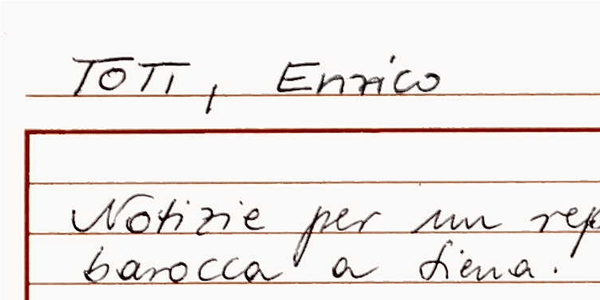 TOTI, Enrico
Notizie per un rep
barocca a Siena.